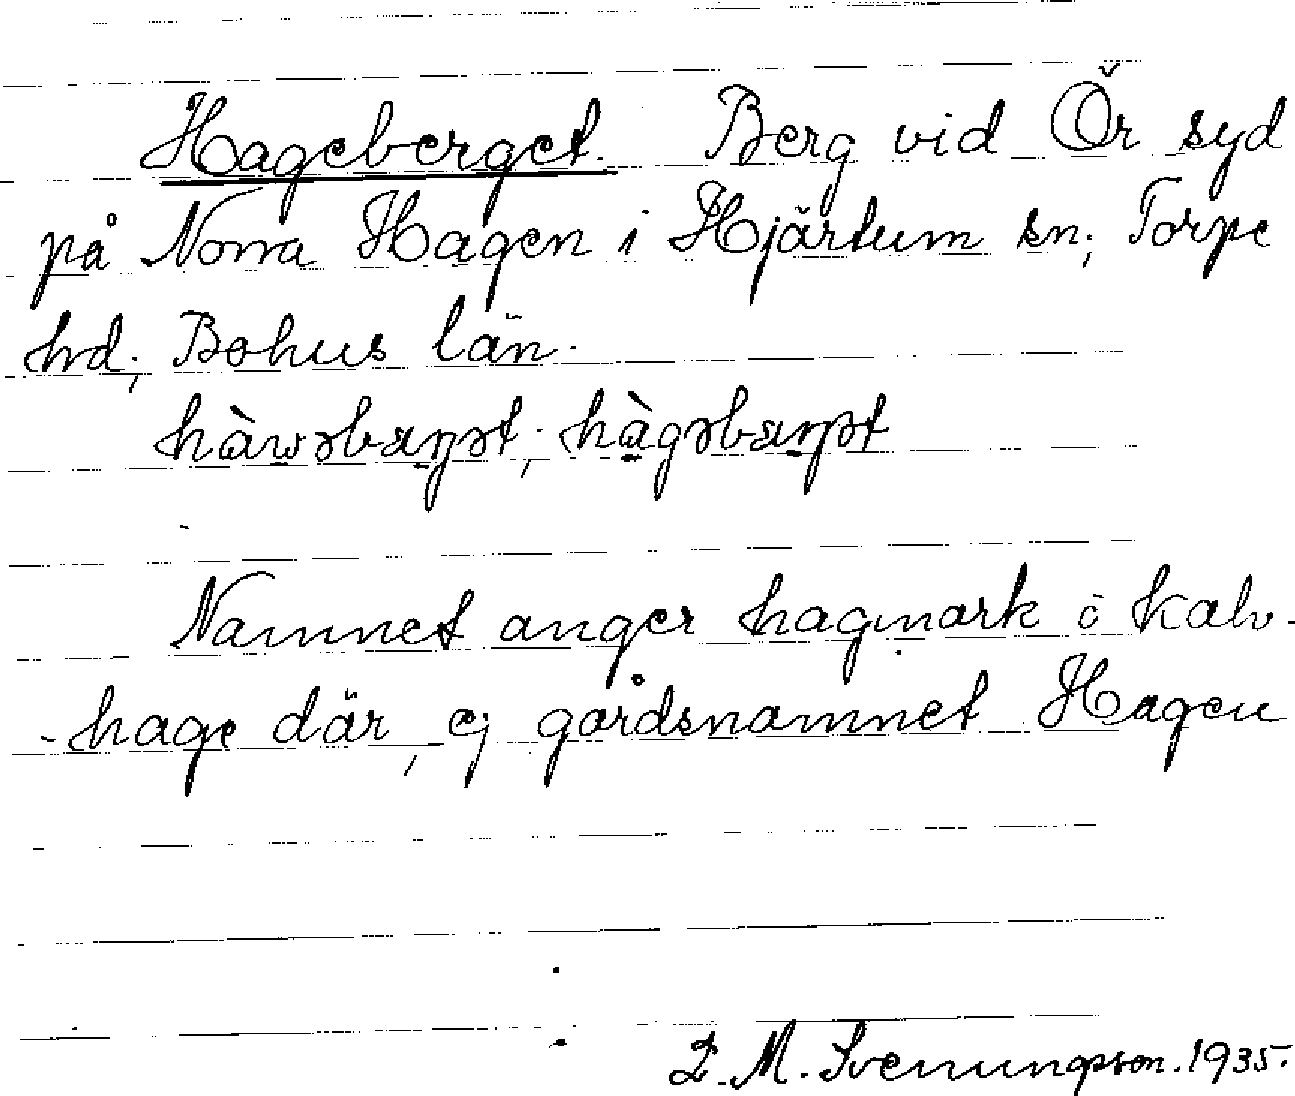 Hageberget. Berg vid Ör syd
på Norra Hagen i Hjärtum sn, Torpe
hd, Bohus län.
Namnet anger hagmark i kalv-
-hage där, ej gårdsnamnet Hagen
M. Svenungsson. 1935.